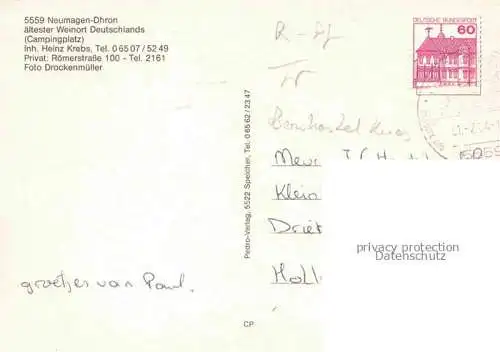 5559 Neumagen-Dhron
ältester Weinort Deutschlands
(Campingplatz)
Inh. Heinz Krebs, Tel. 0 65 07 / 52 49
Privat: Römerstraße 100 - Tel. 2161
Foto Drockenmüller
DEUTSCHE BUNDESPOST
60
Pedro-Verlag, 5522 Speicher, Tel. 0 65 62 / 23 47
Mevr
Klein
Holl
groetjes van Paul.
privacy protection
Datenschutz
CP